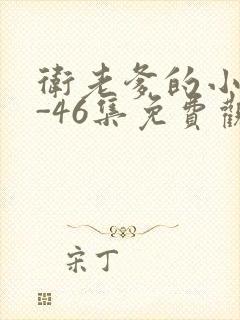 衛老爹的小
-46集免費觀
宋丁